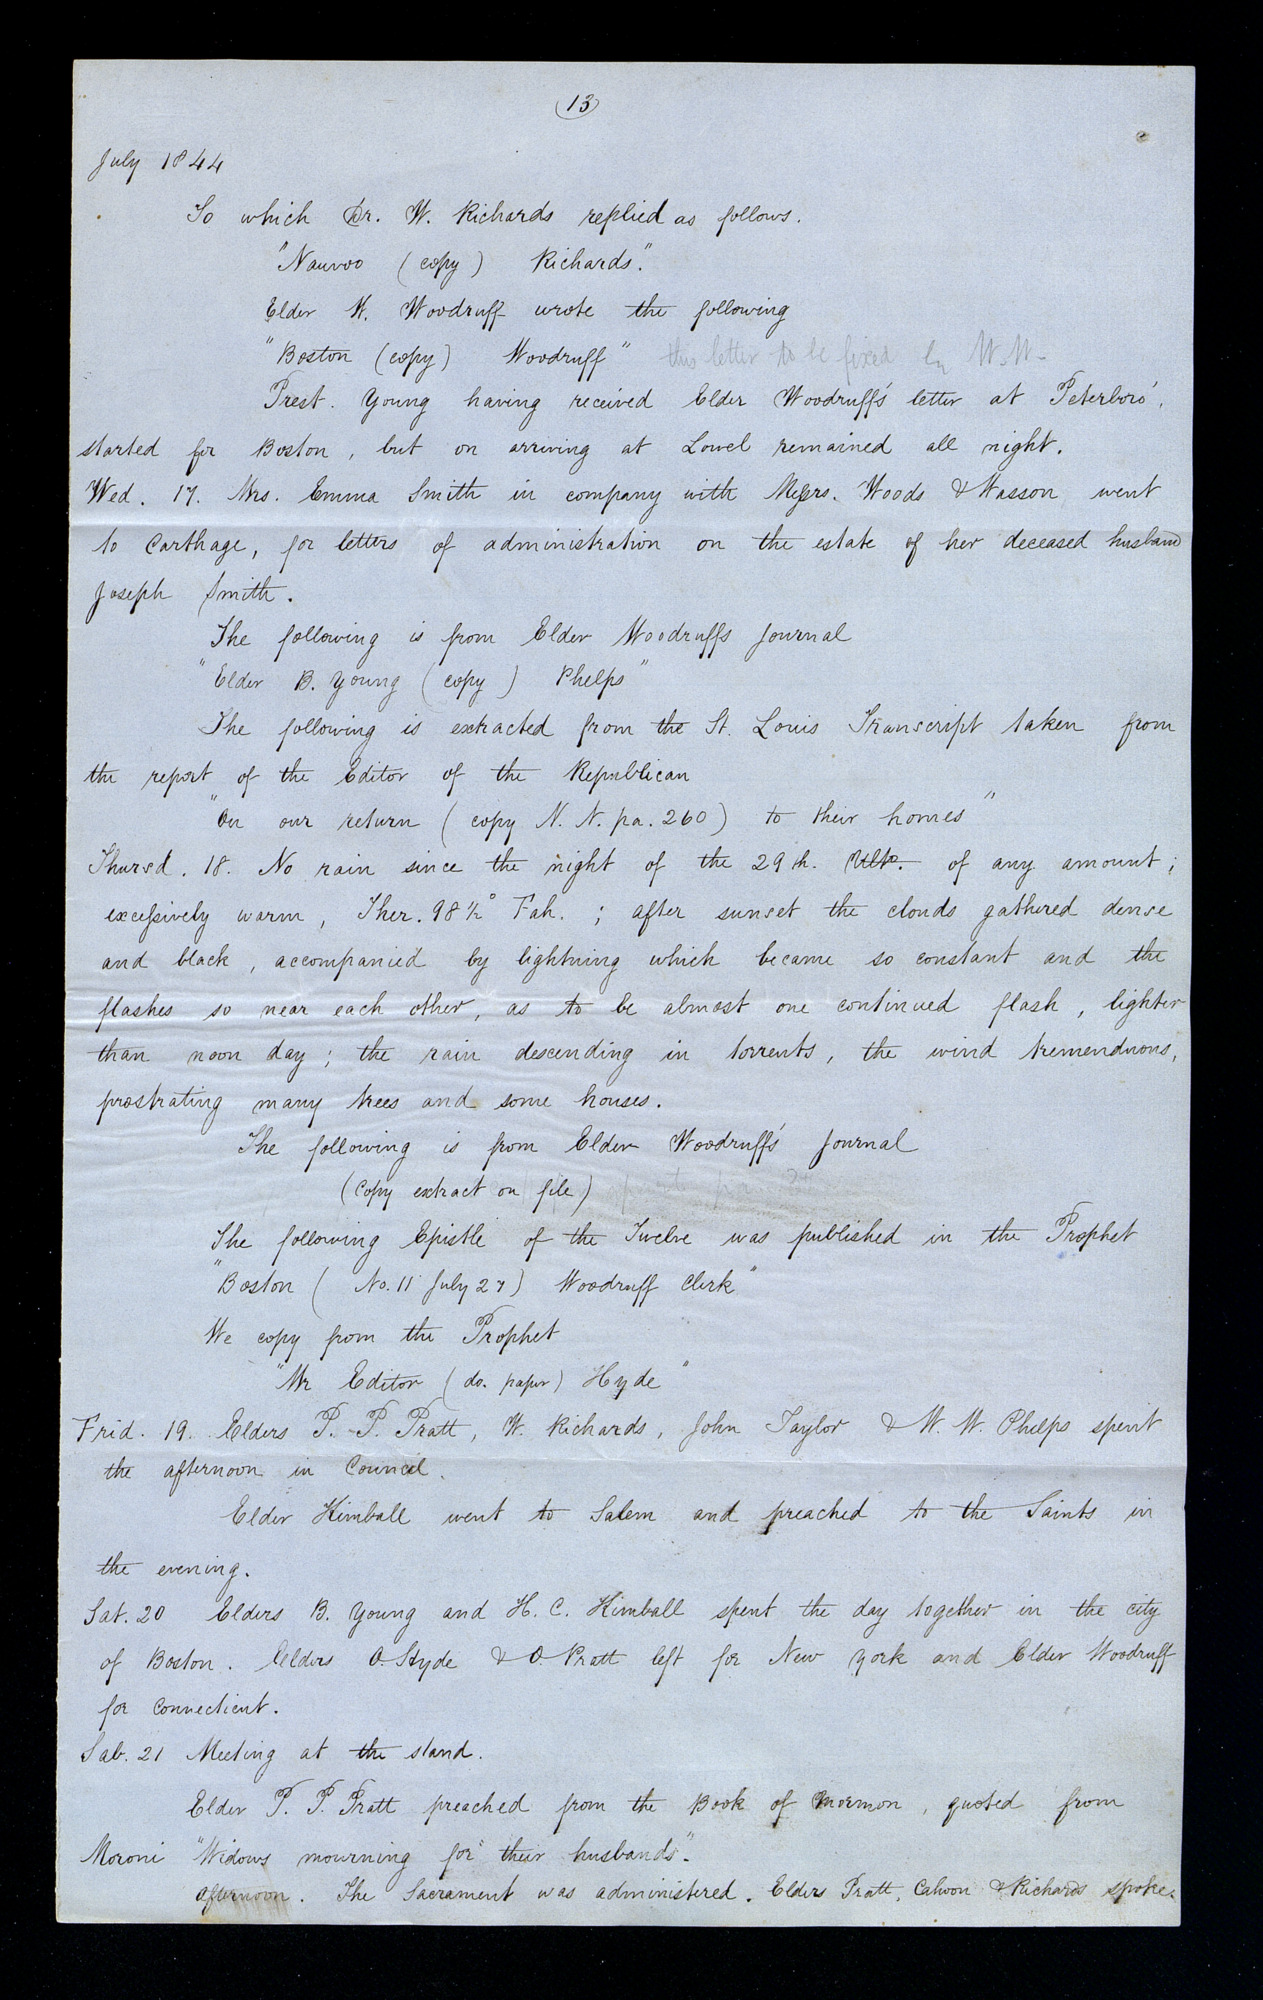 (13)
July 1844
To which Dr. W. Richards replied as follows.
"Nauvoo (copy) Richards."
Elder W. Woodruff wrote the following
"Boston (copy) Woodruff" this letter to be fixed by W. W.
Prest. Young having received Elder Woodruff's letter at Peterboro',
started for Boston, but on arriving at Lowel remained all night.
Wed. 17. Mrs. Emma Smith in company with Messrs. Woods & Wasson went
to Carthage, for letters of administration on the estate of her deceased husband
Joseph Smith.
The following is from Elder Woodruffs Journal
"Elder B. Young (copy) Phelps"
The following is extracted from the St. Louis Transcript taken from
the report of the Editor of the Republican
"On our return (copy N. N. pa. 260) to their homes"
Thursd. 18. No rain since the night of the 29th. Ulto. of any amount;
excessively warm, Ther. 98½° Fah.; after sunset the clouds gathered dense
and black, accompanied by lightning which became so constant and the
flashes so near each other, as to be almost one continued flash, lighter
than noon day; the rain descending in torrents, the wind tremenduous,
prostrating many trees and some houses.
The following is from Elder Woodruff's Journal
(copy extract on file)
The following Epistle of the Twelve was published in the Prophet
"Boston (No. 11 July 27) Woodruff Clerk"
We copy from the Prophet
"Mr Editor (do. paper) Hyde"
Frid. 19. Elders P. P. Pratt, W. Richards, John Taylor & W. W. Phelps spent
the afternoon in Council.
Elder Kimball went to Salem and preached to the Saints in
the evening.
Sat. 20 Elders B. Young and H. C. Kimball spent the day together in the city
of Boston. Elders O. Hyde & O. Pratt left for New York and Elder Woodruff
for Connecticut.
Sab. 21 Meeting at the stand.
Elder P. P. Pratt preached from the Book of Mormon, quoted from
Moroni "Widows mourning for their husbands".
afternoon. The Sacrament was administered. Elders Pratt, Cahoon & Richards spoke.